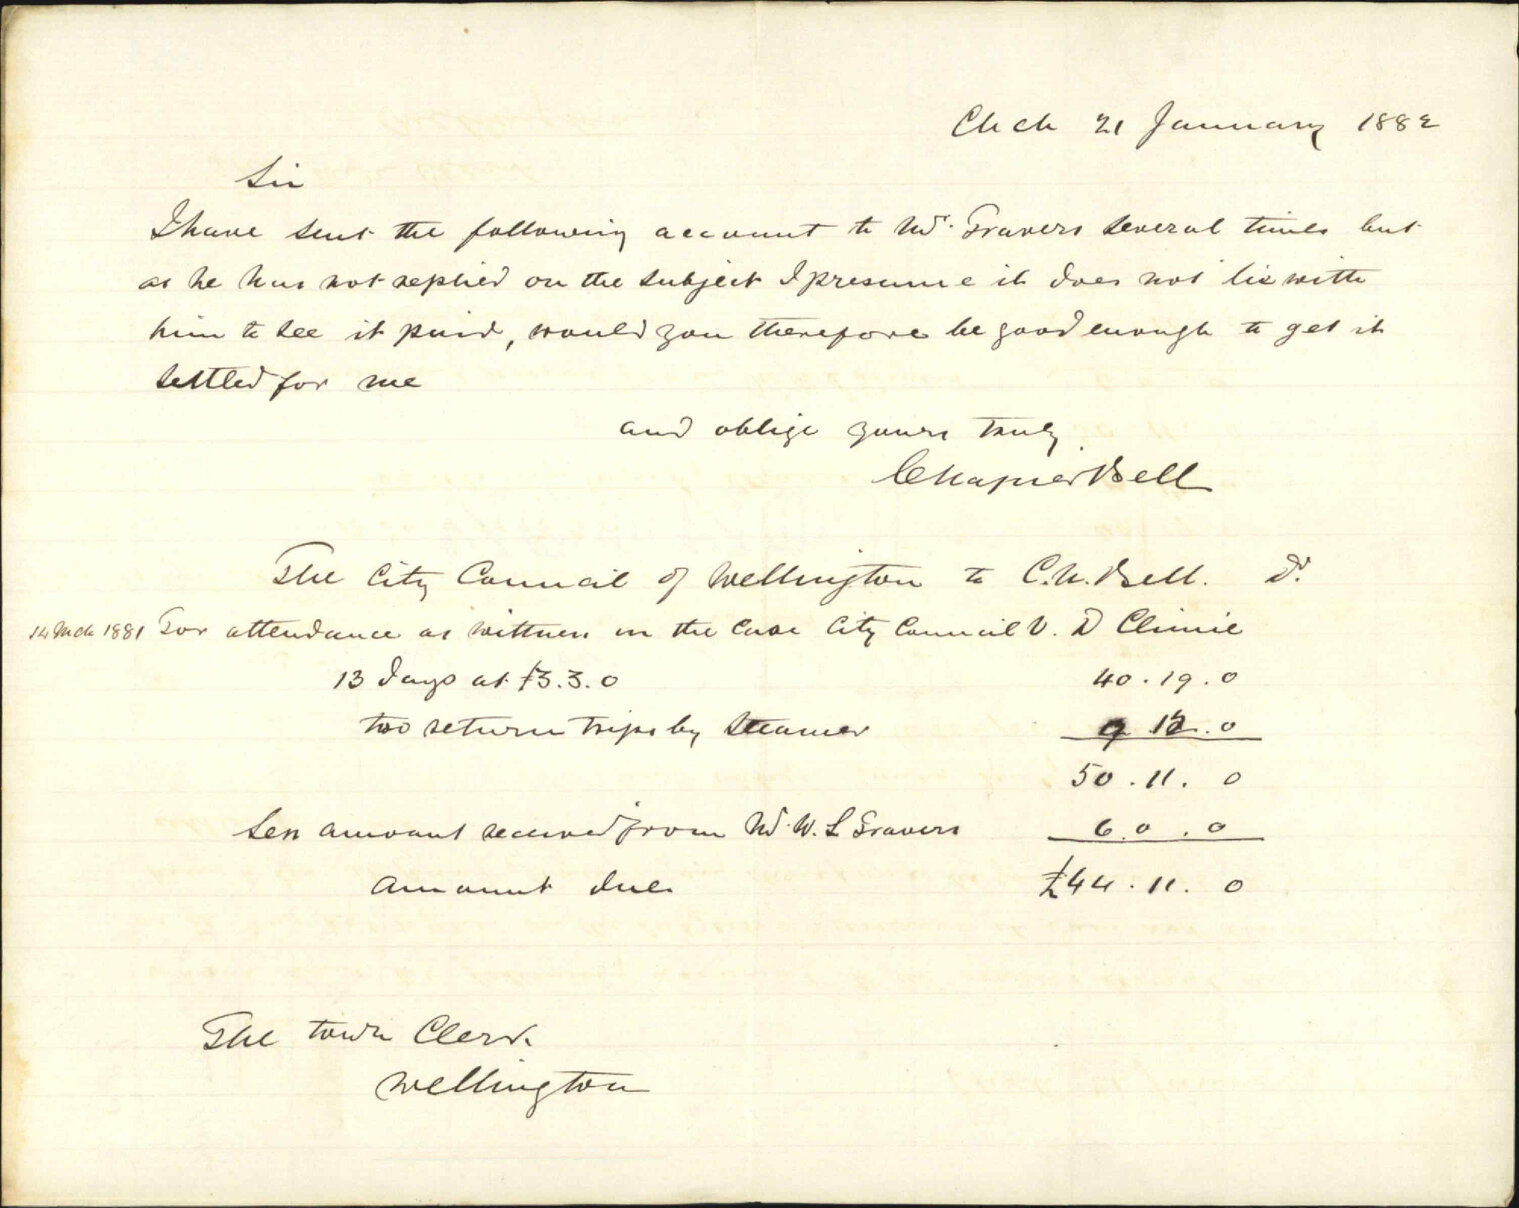 Chch 21 January 1882
Sir
I have sent the following account to Mr. Travers several times but
as he has not replied on the subject I presume it does not lie with
him to see it paid, would you therefore be good enough to get it
settled for me
and oblige yours truly
C Napier Bell
The City Council of Wellington to C. N. Bell. Dr.
14 Mch 1881 For attendance as wittness in the case City Council V. D Climie
13 days at £3.3.0 40.19.0
two return trips by Steamer 9 12.0
50.11.0
Less amount received from Mr. W. L Travers 6.0.0
Amount due £44.11.0
The town Clerk
Wellington